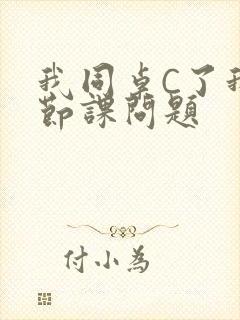 我同卓C了我
節課問題
付小為